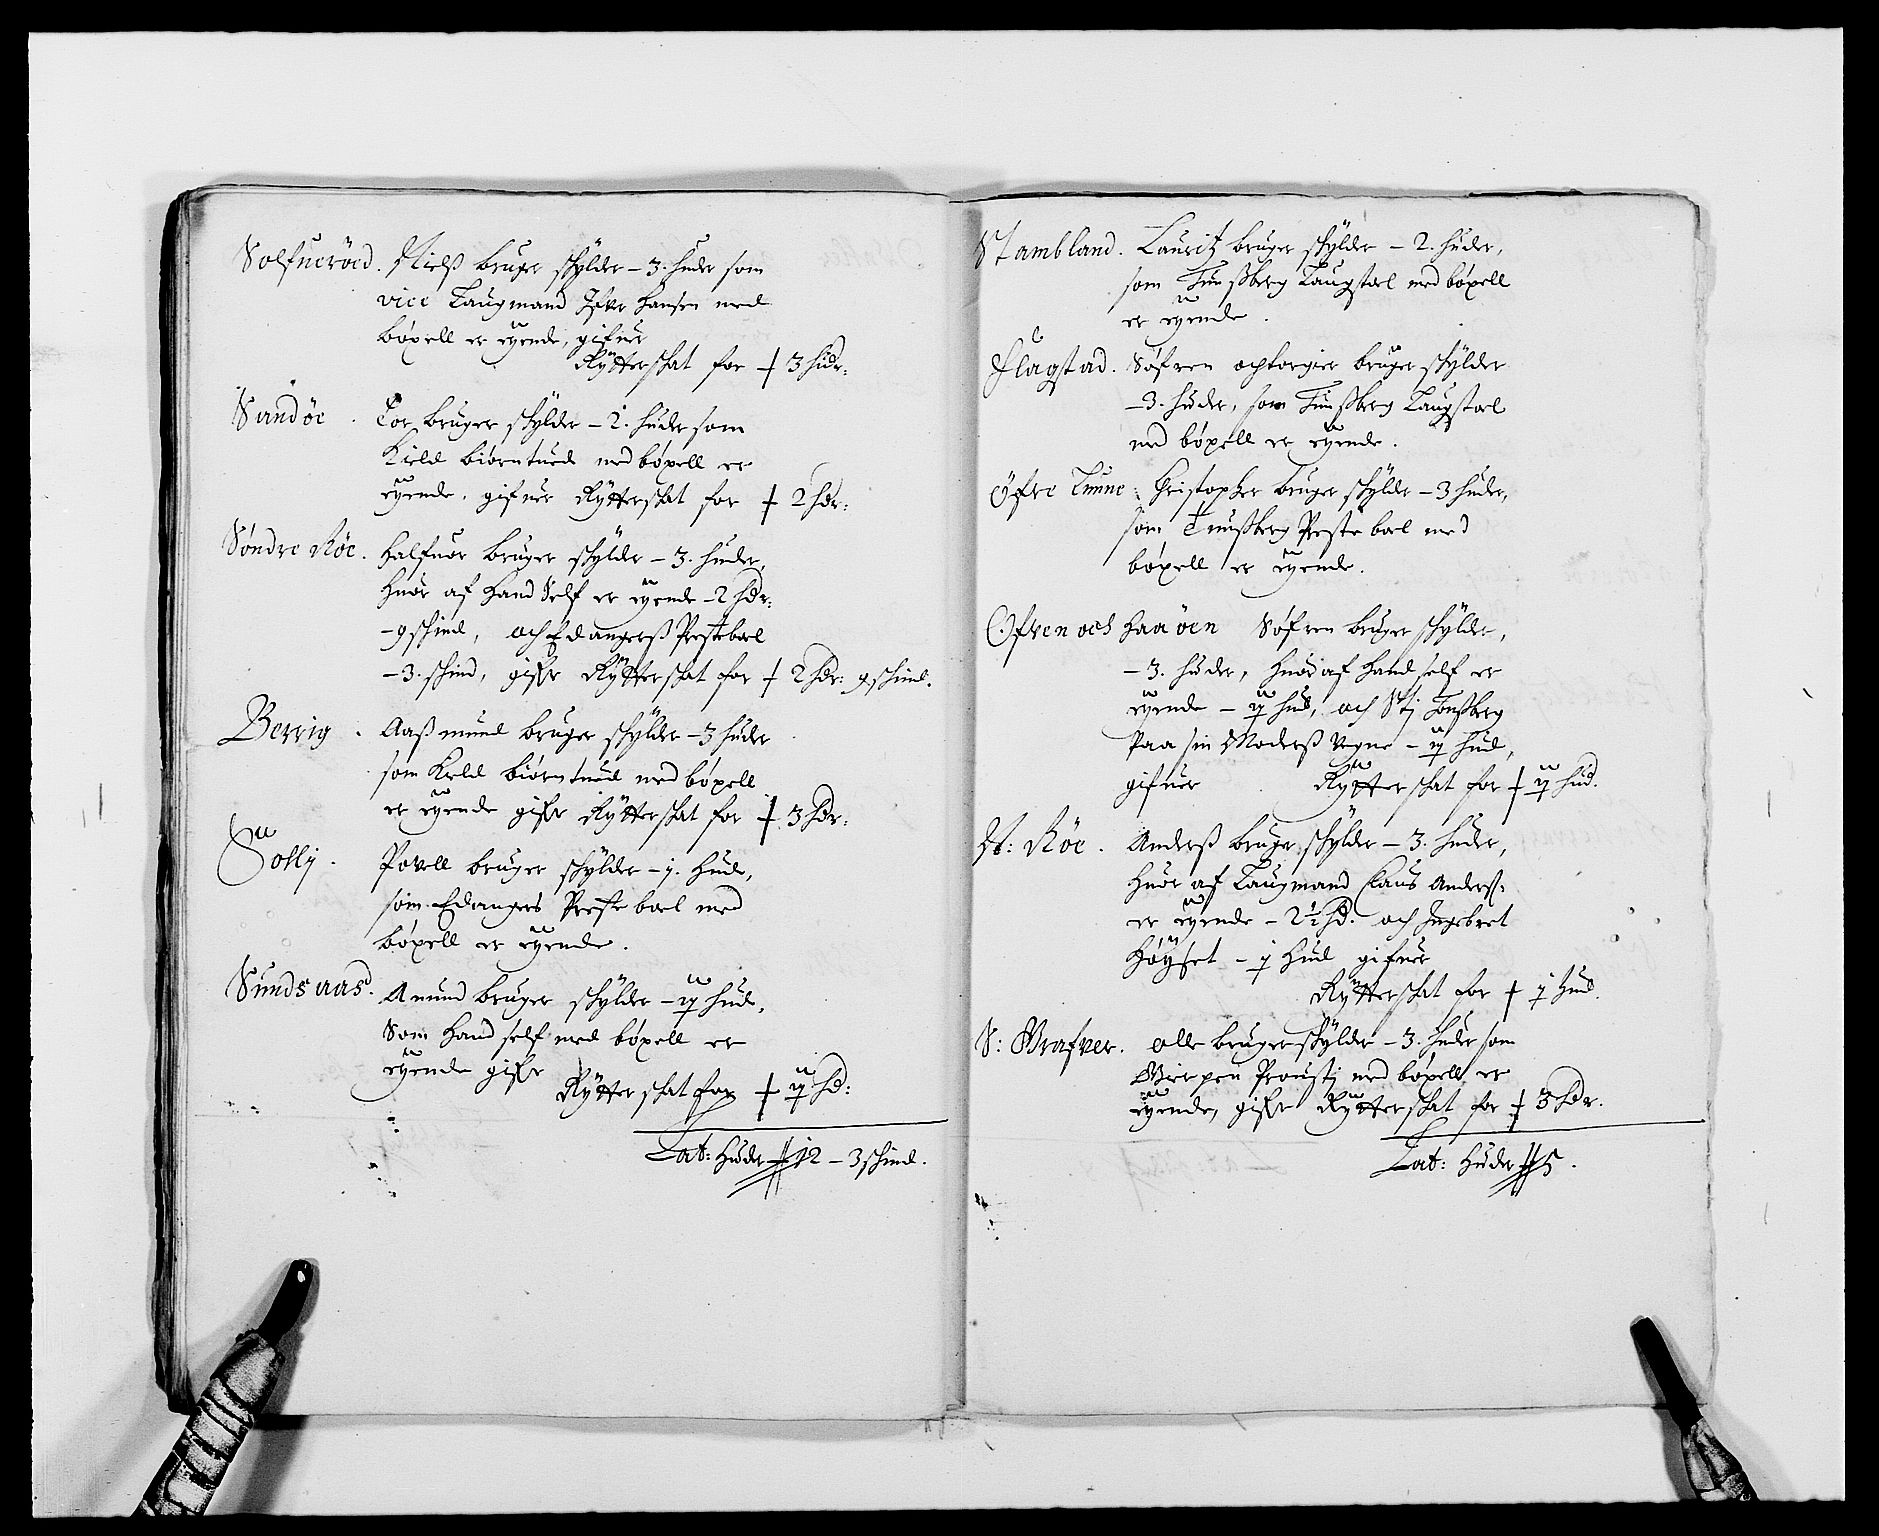 Solfueröed. Nielß bruger skylder – 3. huder som
vice Laugmand Ifver Hansen med
böxell er eyende, gifuer
Rytterskat for ⸸ 3 hudr:
Sandöe . Tor bruger skylder – 2. huder som
Kield biörntued med böxell er
eyende. gifuer Rytterskat for ⸸ 2 hdr:
Söndre Röe. Halfuor bruger skylder – 3. huder,
huor af hand Self er eyende – 2 hdr:
– 9 skind, och Edangerß Presteboel
– 3. skind, gifr Rytterskat for ⸸ 2 hdr: 9 skind.
Berrig . Aaßmund bruger skylder – 3 huder
som Keld biörntued med böxell
er eyende gifr Rytterskat for ⸸ 3 hdr:
Solly . Povell bruger skylder – j. hud,
som Edangers Preste boel med
böxell er eyende.
Sundsaas. Amund bruger skylder – ij hud,
Som hand self med böxell er
eyende gifr
Rytterskat for ⸸ ij hd:
Lat: huder ⸗ 12 – 3 skind.
Stambland. Lauritz bruger skylder – 2. huder,
som Tunßberg Laugstoel med böxell
er eyende .
Flagstad. Söfren och torgier bruger skylder
– 3. huder, som Tunßberg Laugstoel
med böxell er eyende.
Öfre Linne: Christopher bruger skylder – 3 huder,
som Tunßberg Preste boel med
böxell er eyende.
Ofren och haaöen Söfren bruger skylder,
– 3. huder, huoraf hand self er
eyende – ij hud, och Stj Tonßberg
Paa sin Moderß Vegne – ij hud,
gifuer Rytterskat for ⸸ ij hud.
N: Röe . Anderß bruger skylder – 3. huder,
huor af Laugmand Claus Anderß:
er eyende – 2½ hd. och Ingebret
Höyset – j hud gifuer
Rytterskat for ⸸ j hud.
S: Grafver. olle bruger skylder – 3. huder som
Gierpen Proustj med böxell er
eyende, gifr Rytterskat for ⸸ 3 hdr.
Lat: huder ⸗ 5 .